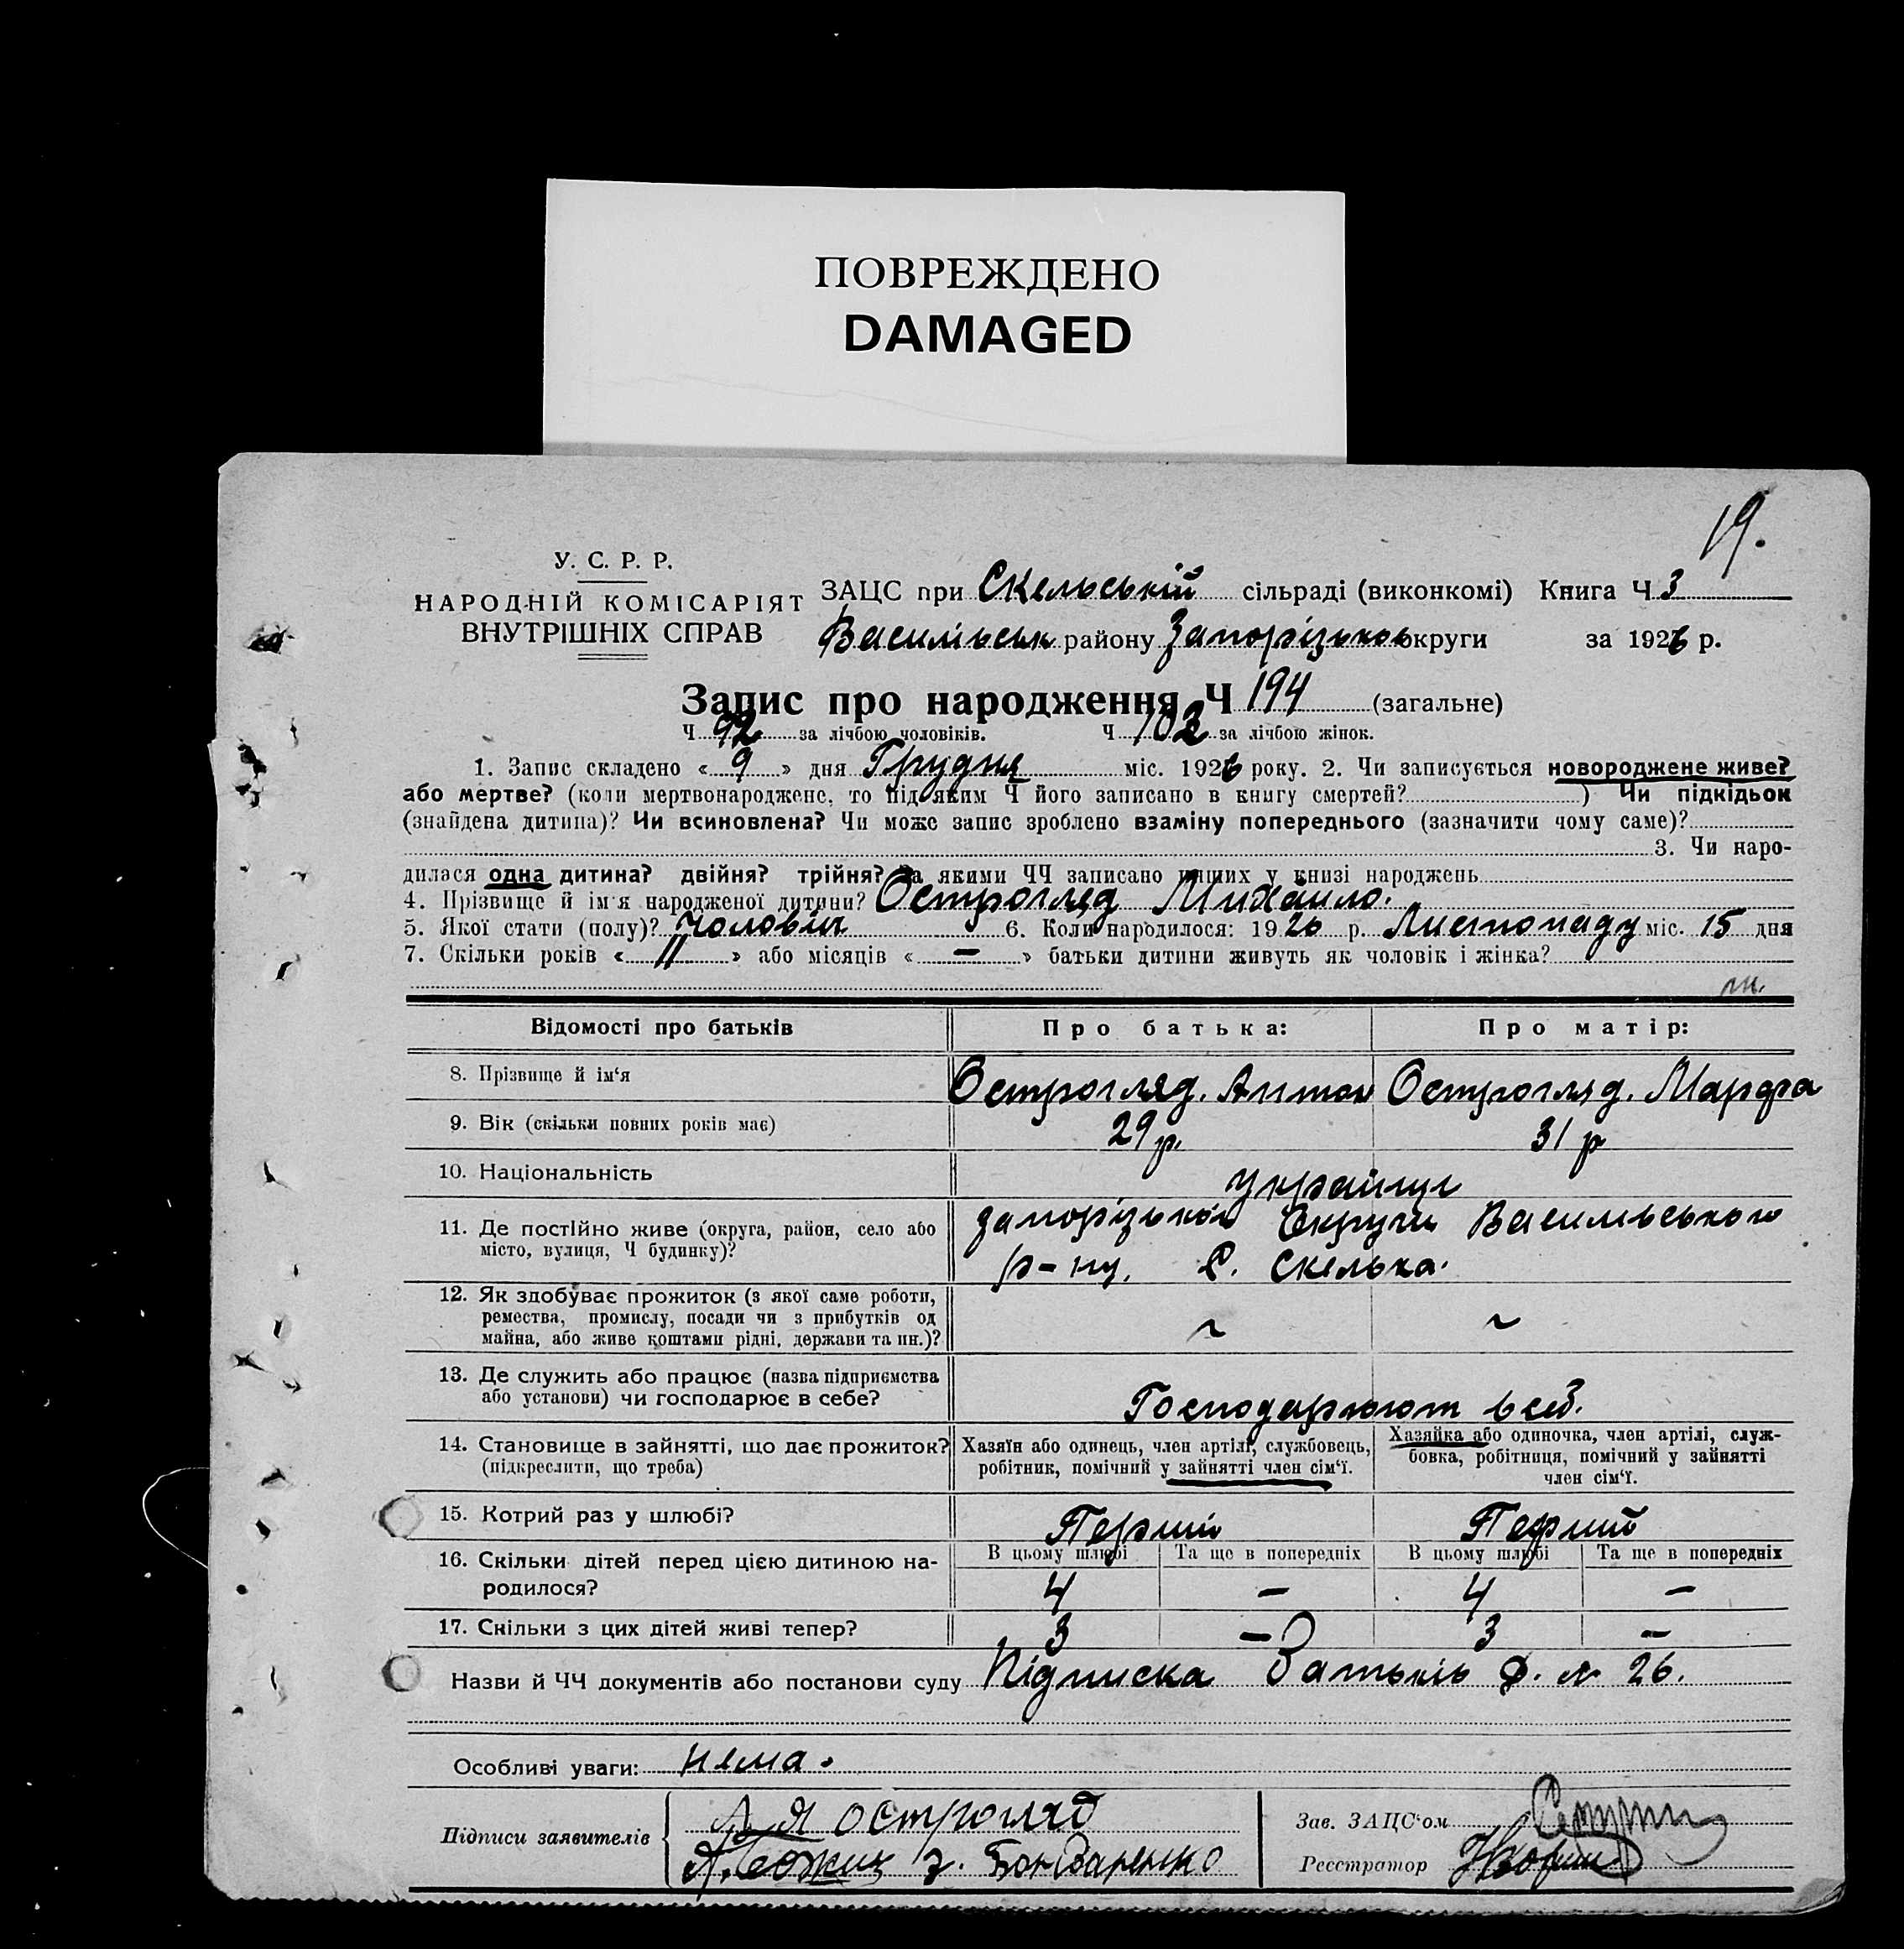 ПОВРЕЖДЕНО
DAMAGED
19.
У. С. Р. Р.
НАРОДНІЙ КОМІСАРІЯТ
ВНУТРІШНІХ СПРАВ
ЗАЦС при Скельській сільраді (виконкомі) Книга Ч 3
Васильівськ району Запорізької округи за 1926 р.
Запис про народження Ч 194 (загальне)
Ч 92 за лічбою чоловіків. Ч 102 за лічбою жінок.
1. Запис складено « 9 » дня Грудня міс. 1926 року. 2. Чи записується новороджене живе?
або мертве? (коли мертвонароджене, то під яким Ч його записано в книгу смертей? ) Чи підкідьок
(знайдена дитина)? Чи всиновлена? Чи може запис зроблено взаміну попереднього (зазначити чому саме)?
3. Чи наро-
дилася одна дитина? двійня? трійня? За якими ЧЧ записано инших у книзі народжень
4. Прізвище й ім'я народженої дитини? Острогляд Михайло.
5. Якої стати (полу)? Чоловіч 6. Коли народилося: 1926 р. Листопаду міс. 15 дня
7. Скільки років « 11 » або місяців « — » батьки дитини живуть як чоловік і жінка?
Відомості про батьків Про батька: Про матір:
8. Прізвище й ім'я Острогляд. Антон Острогляд. Марфа
9. Вік (скільки повних років має) 29 р. 31 р
10. Національність Українци
11. Де постійно живе (округа, район, село або Запорізької Округи Васильівського
місто, вулиця, Ч будинку)? р-ну. С. Скелька.
12. Як здобуває прожиток (з якої саме роботи,
ремества, промислу, посади чи з прибутків од
майна, або живе коштами рідні, держави та ин.)? ~ ~
13. Де служить або працює (назва підприємства
або установи) чи господарює в себе? Господарюют в себ.
14. Становище в зайнятті, що дає прожиток? Хазяїн або одинець, член артілі, службовець, Хазяйка або одиночка, член артілі, служ-
(підкреслити, що треба) робітник, помічний у зайнятті член сім'ї. бовка, робітниця, помічний у зайнятті
член сім'ї.
15. Котрий раз у шлюбі? Перший Перший
16. Скільки дітей перед цією дитиною на- В цьому шлюбі Та ще в попередніх В цьому шлюбі Та ще в попередніх
родилося? 4 — 4 —
17. Скільки з цих дітей живі тепер? 3 — 3 —
Назви й ЧЧ документів або постанови суду Підписка Батьків 26.
Особливі уваги: нема.
Підписи заявителів А Я острогляд
Бондаренко
Зав. ЗАЦС'ом
Реєстратор